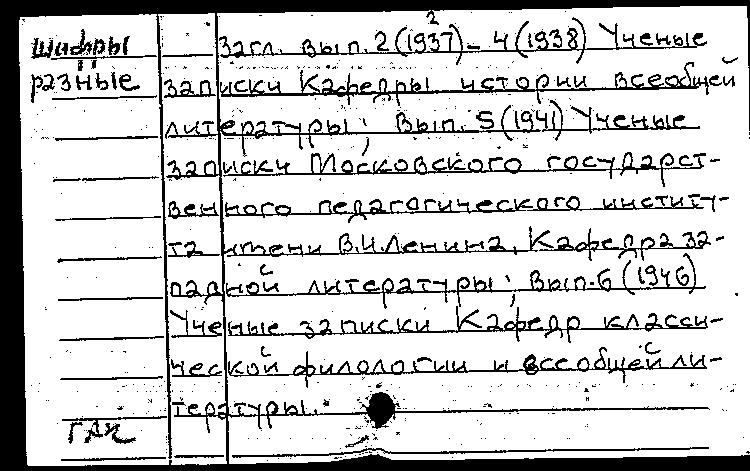 Шифры разные
Загл. Вып. 2 (1937)² – 4 (1938) Ученые
записки Кафедры истории всеобщей
литературы; Вып. 5 (1941) Ученые
записки Московского государст-
венного педагогического институ-
та имени В.И.Ленина, Кафедра за-
падной литературы; Вып. 6 (1946)
Ученые записки Кафедр класси-
ческой филологии и всеобщей ли-
тературы.